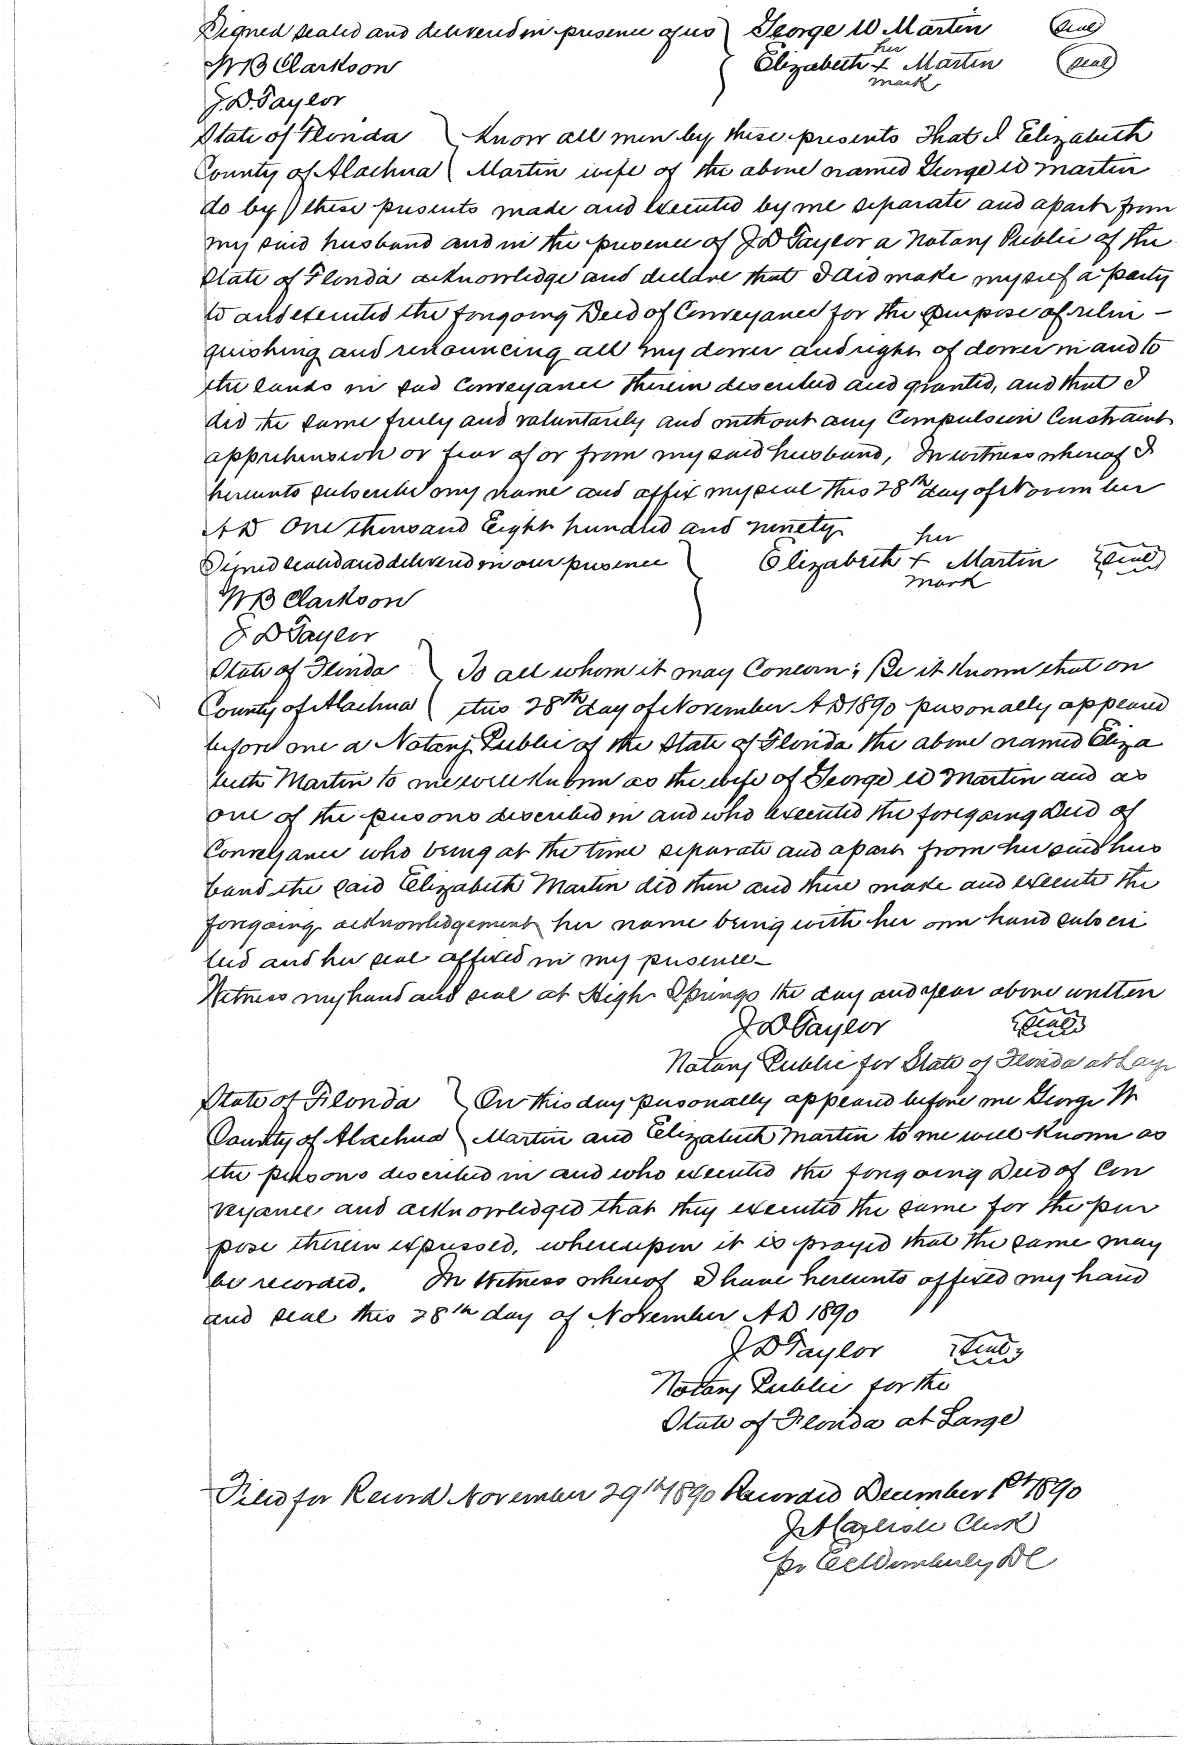 Signed sealed and delivered in presence of us } George W Martin (seal)
WB Clarkson } Elizabeth her + mark Martin (seal)
J.D. Taylor
State of Florida } Know all men by these presents That I Elizabeth
County of Alachua { Martin wife of the above named George W Martin
do by } these presents made and executed by me separate and apart from
my said husband and in the presence of J D Taylor a Notary Public of the
State of Florida acknowledge and declare that I did make myself a party
to and executed the foregoing Deed of Conveyance for the purpose of relin-
quishing and renouncing all my dower and right of dower in and to
the lands in said Conveyance therein described and granted, and that I
did the same freely and voluntarily and without any Compulsion Constraint
apprehension or fear of or from my said husband, In witness whereof I
hereunto subscribe my name and affix my seal this 28th day of November
AD One thousand Eight hundred and ninety
Signed sealed and delivered in our presence } Elizabeth her + mark Martin (seal)
WB Clarkson
J D Taylor
State of Florida } To all whom it may Concern; Be it Known that on
County of Alachua { this 28th day of November AD 1890 personally appeared
before me a Notary Public of the State of Florida the above named Eliza
beth Martin to me well Known as the wife of George W Martin and as
one of the persons described in and who executed the foregoing Deed of
Conveyance who being at the time separate and apart from her said hus
band the said Elizabeth Martin did then and there make and execute the
foregoing acknowledgement her name being with her own hand subscri
bed and her seal affixed in my presence-
Witness my hand and seal at High Springs the day and year above written
J D Taylor (seal)
Notary Public for State of Florida at Large
State of Florida } On this day personally appeared before me George W
County of Alachua { Martin and Elizabeth Martin to me well Known as
the persons described in and who executed the foregoing Deed of Con
veyance and acknowledged that they executed the same for the pur
pose therein expressed, whereupon it is prayed that the same may
be recorded. In Witness whereof I have hereunto affixed my hand
and seal this 28th day of November AD 1890
J D Taylor (seal)
Notary Public for the
State of Florida at Large
Filed for Record November 29th 1890 Recorded December 1st 1890
J A Carlisle Clerk
pr Wimberly DC